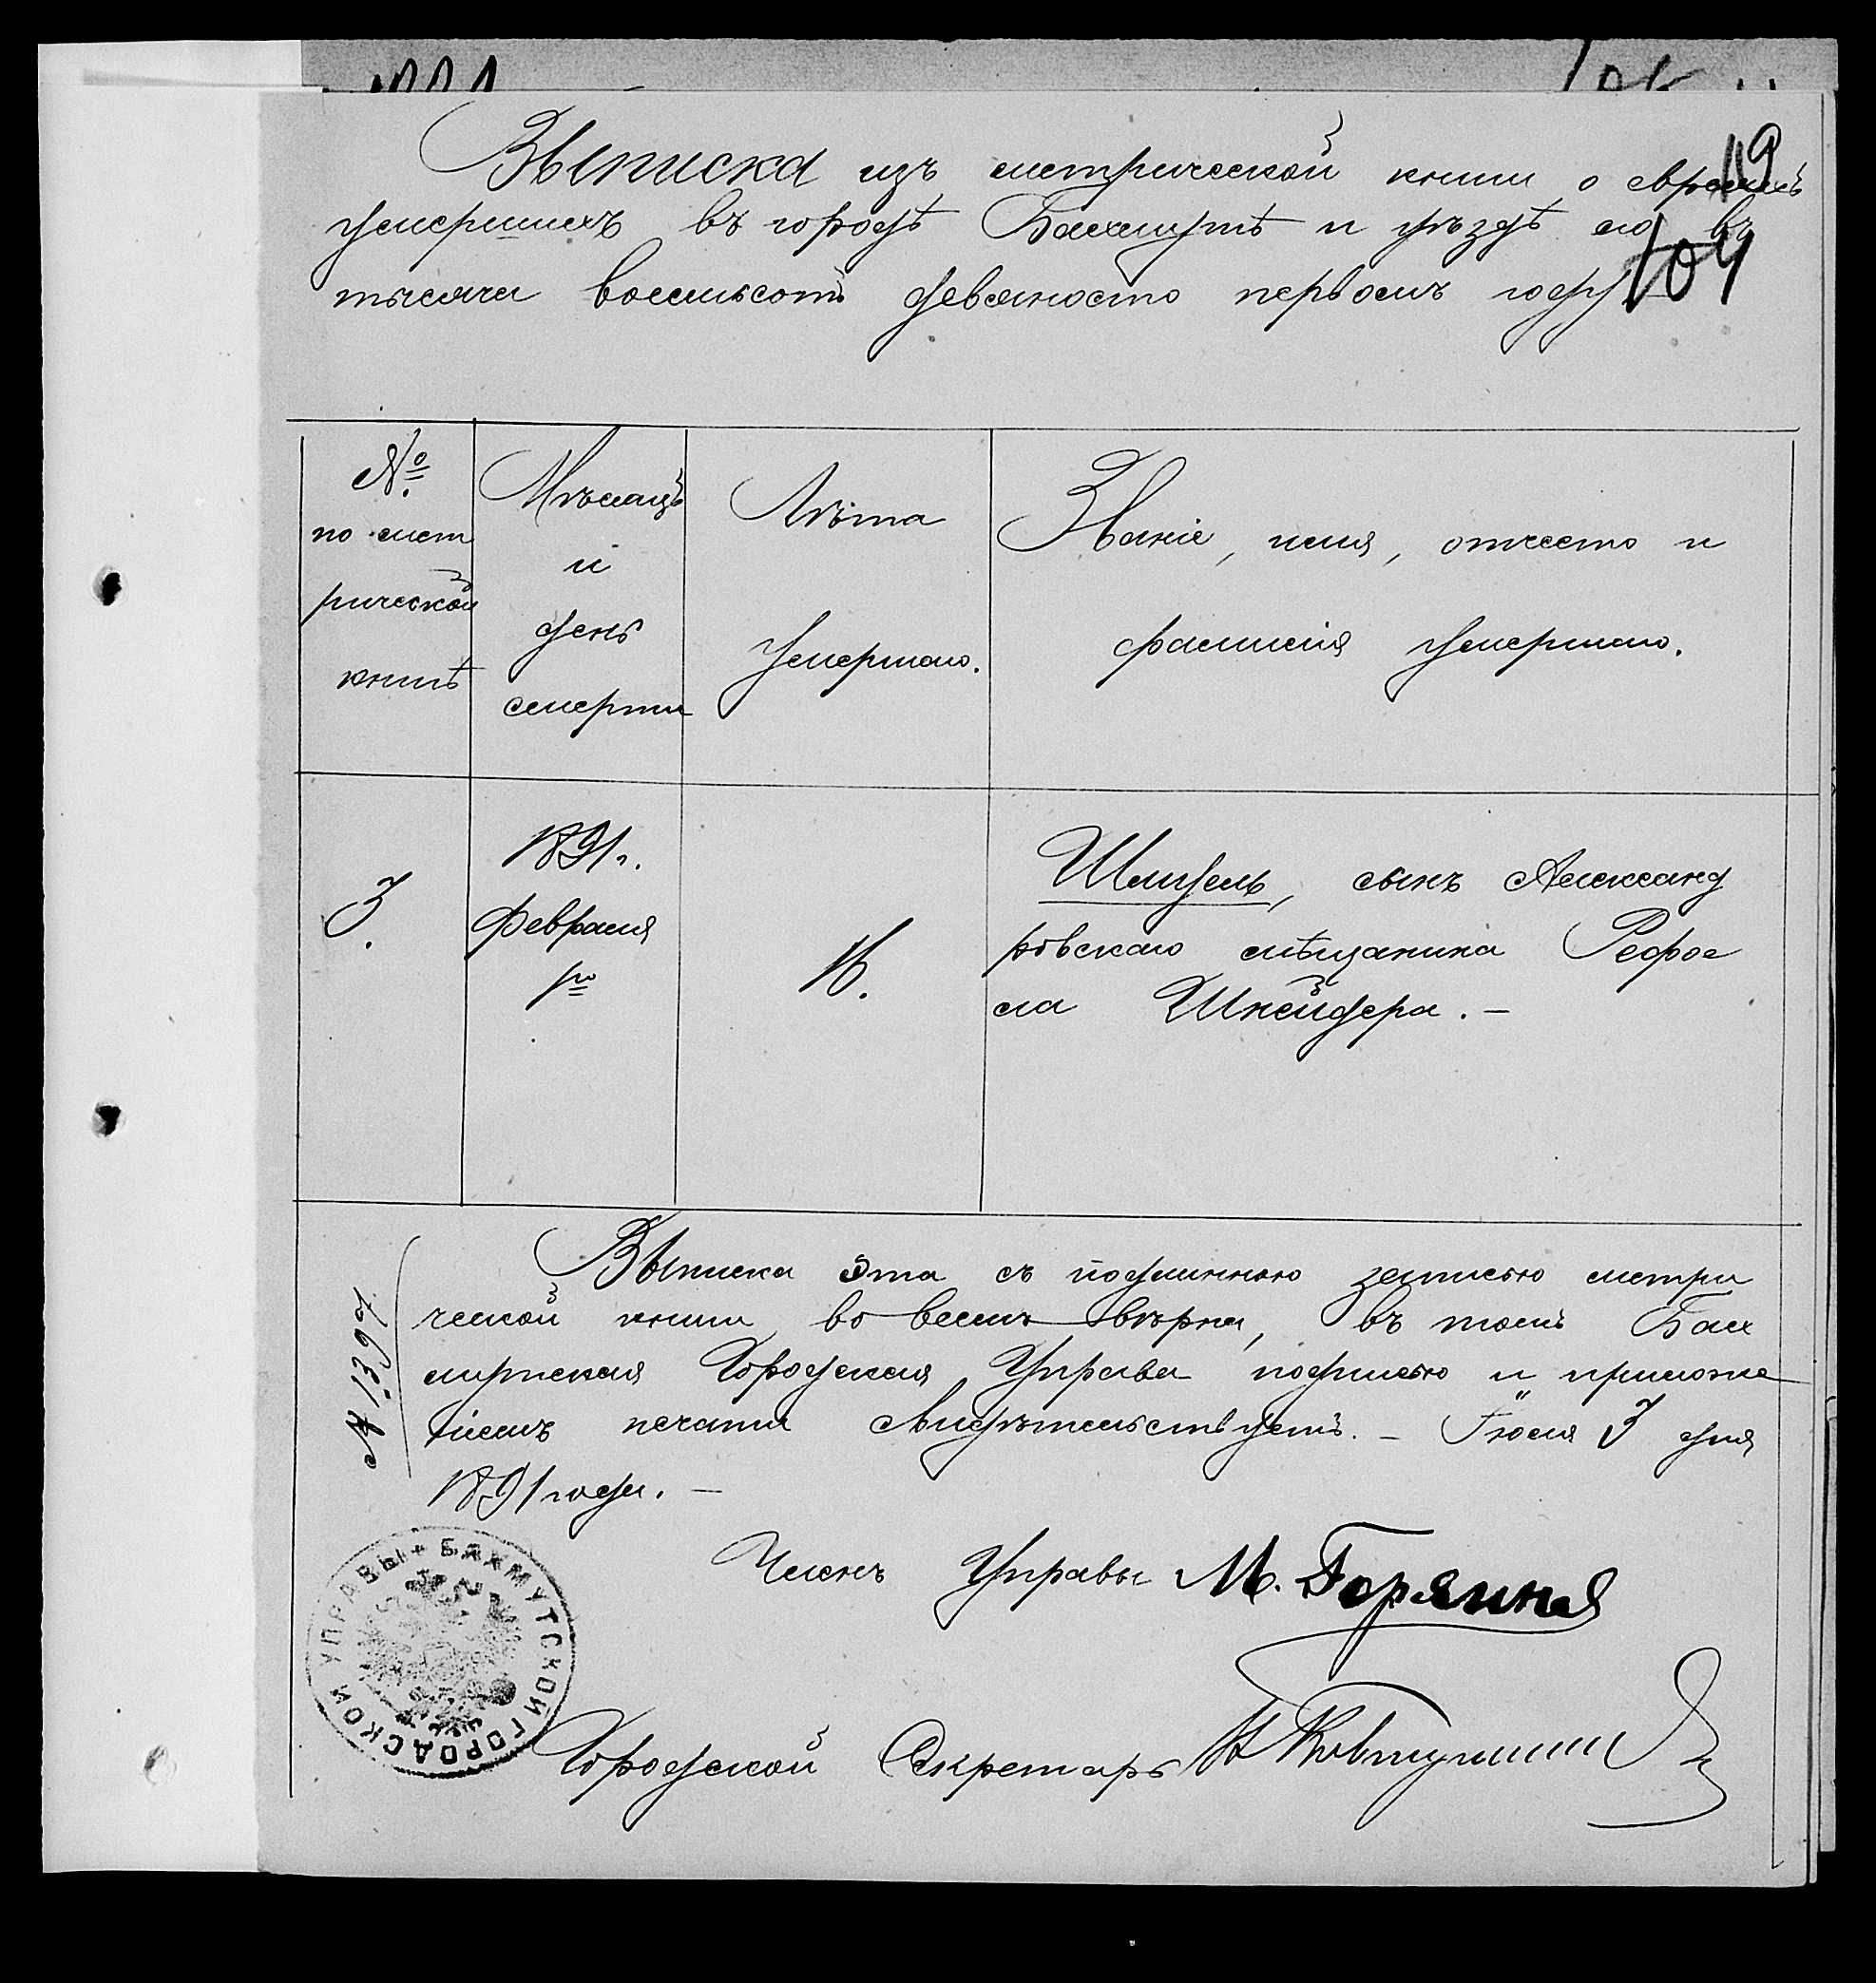 119
Выписка изъ метрической книги о евреяхъ
умершихъ въ городѣ Бахмутѣ и уѣздѣ его въ
104
тысяча восемьсотъ девяносто первомъ году
№
по мет
рической
книгѣ
Мѣсяцъ
и
день
смерти
Лѣта
умершаго.
Званіе, имя, отчество и
фамилія умершаго.
3.
1891 г.
Февраля
1го
16.
Шмуель, сынъ Александ
ровскаго мѣщанина Рефое
ла Шнейдера. —
№ 1397
Выписка эта съ подлинною записью метри
ческой книги во всемъ вѣрна, въ томъ Бах
мутская Городская Управа подписью и приложе
ніемъ печати свидѣтельствуетъ. — Іюля 3 дня
1891 года. —
Членъ Управы М. Горяинов
Городской Секретарь
БАХМУТСКОЙ ГОРОДСКОЙ УПРАВЫ